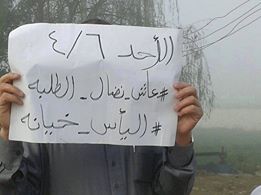 الأحد ٤/٦
#عاش_نضال_الطلبه
#اليأس_خيانه